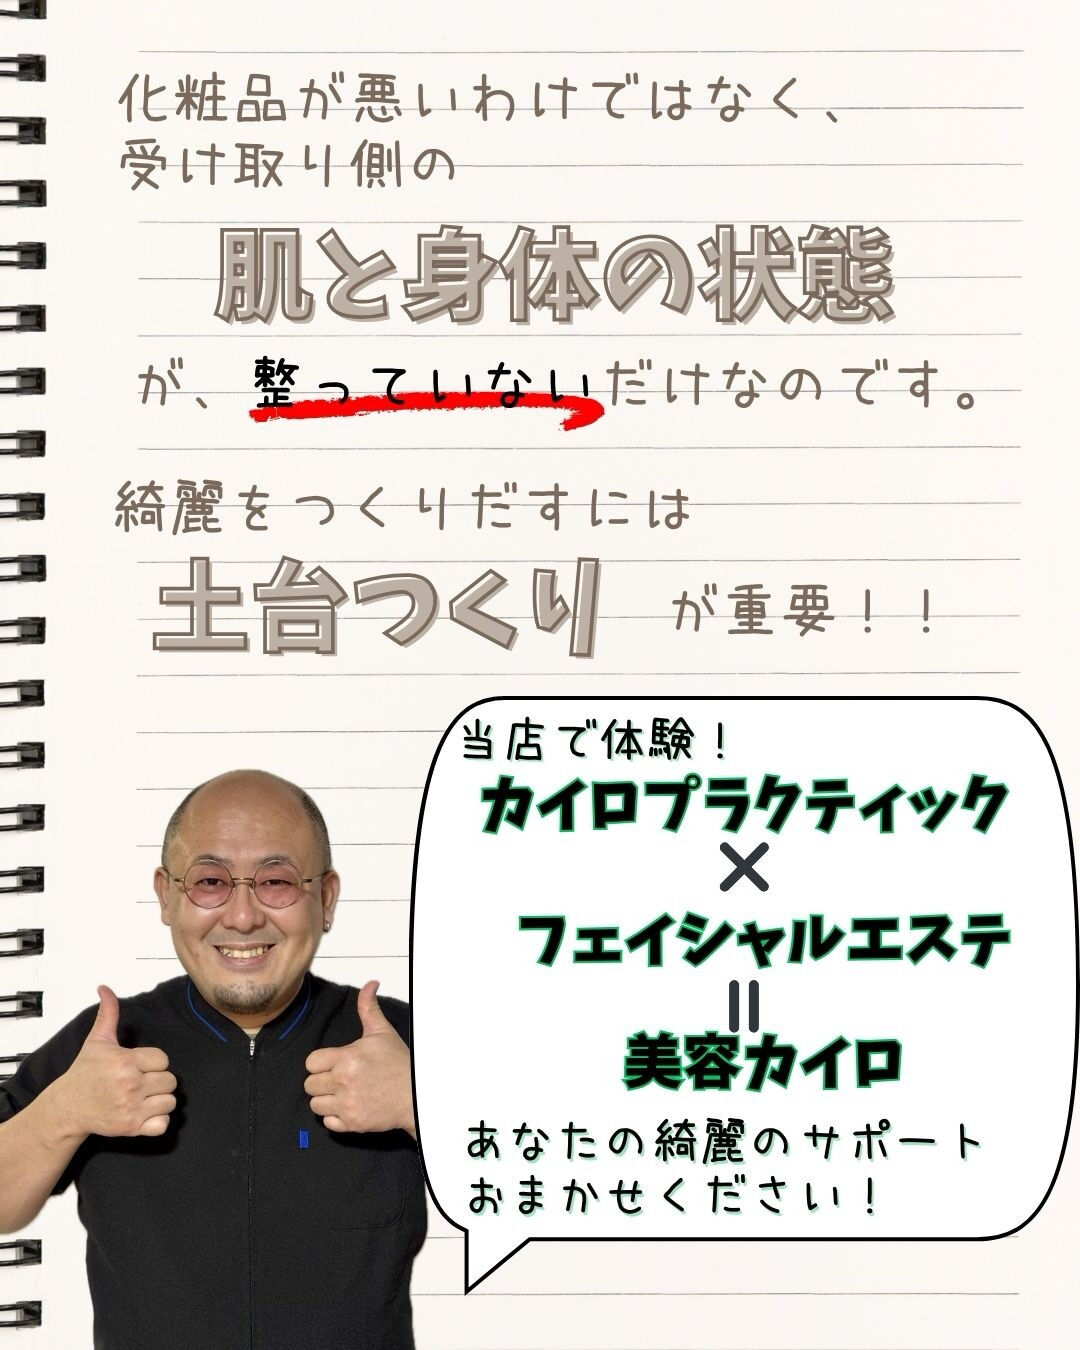 化粧品が悪いわけではなく、
受け取り側の
肌と身体の状態
が、整っていないだけなのです。
綺麗をつくりだすには
土台つくり が重要！！
当店で体験！
カイロプラクティック
×
フェイシャルエステ
=
美容カイロ
あなたの綺麗のサポート
おまかせください！